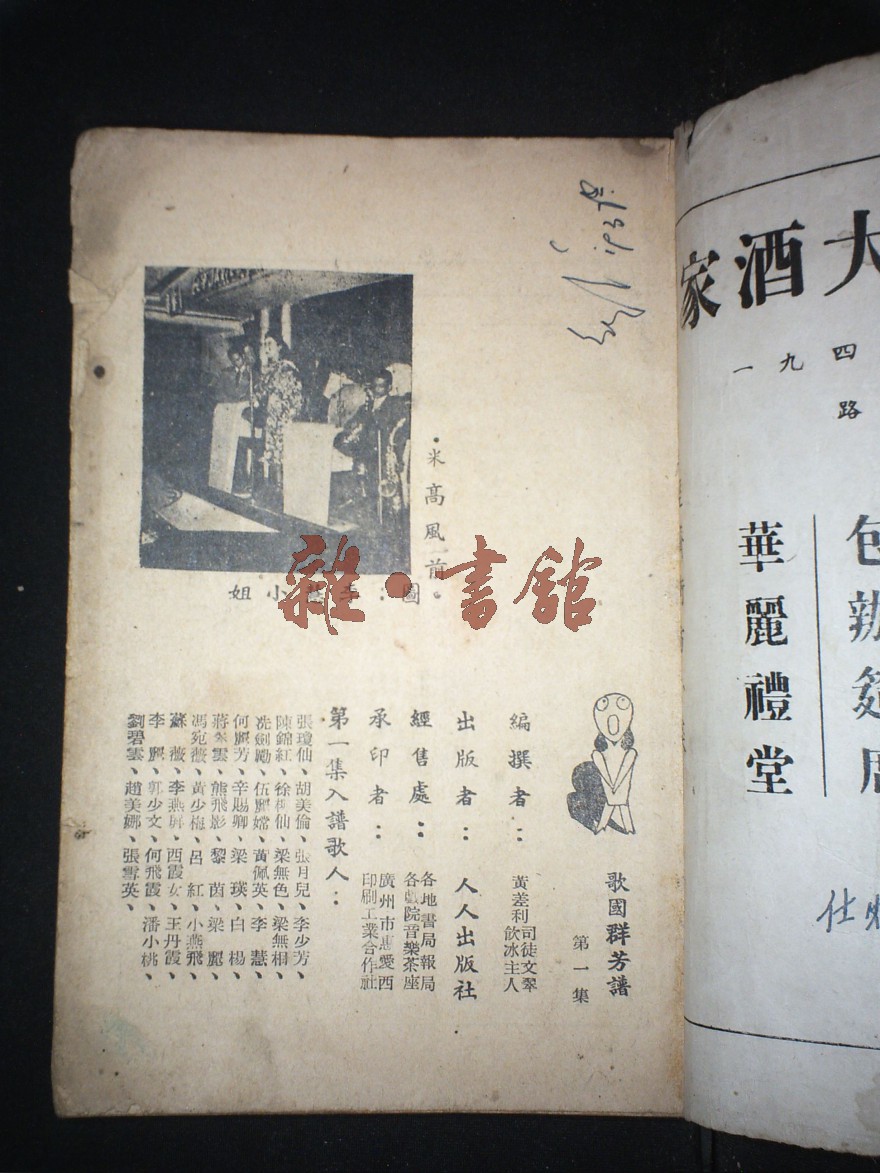 大酒家
四九一
路
華麗禮堂
米高風前
圖：李慧小姐
雜·書館
歌國群芳譜
第一集
編撰者：黃差利 司徒文翠 飲冰主人
出版者：人人出版社
經售處：各地書局報局 各戲院音樂茶座
承印者：廣州市惠愛西 印刷工業合作社
第一集入譜歌人：
張瓊仙、胡美倫、張月兒、李少芳、
陳錦紅、徐柳仙、梁無色、梁無相、
冼劍勵、伍麗嫦、黃佩英、李慧、
何麗芳、辛賜卿、梁瑛、白楊、
蔣雲、熊飛影、黎茵、梁麗、
馮宛薇、黃少梅、呂紅、小燕飛、
蘇薇、李燕屏、西霞女、王丹霞、
李麗、郭少文、何飛霞、潘小桃、
劉碧雲、趙美娜、張雪英、